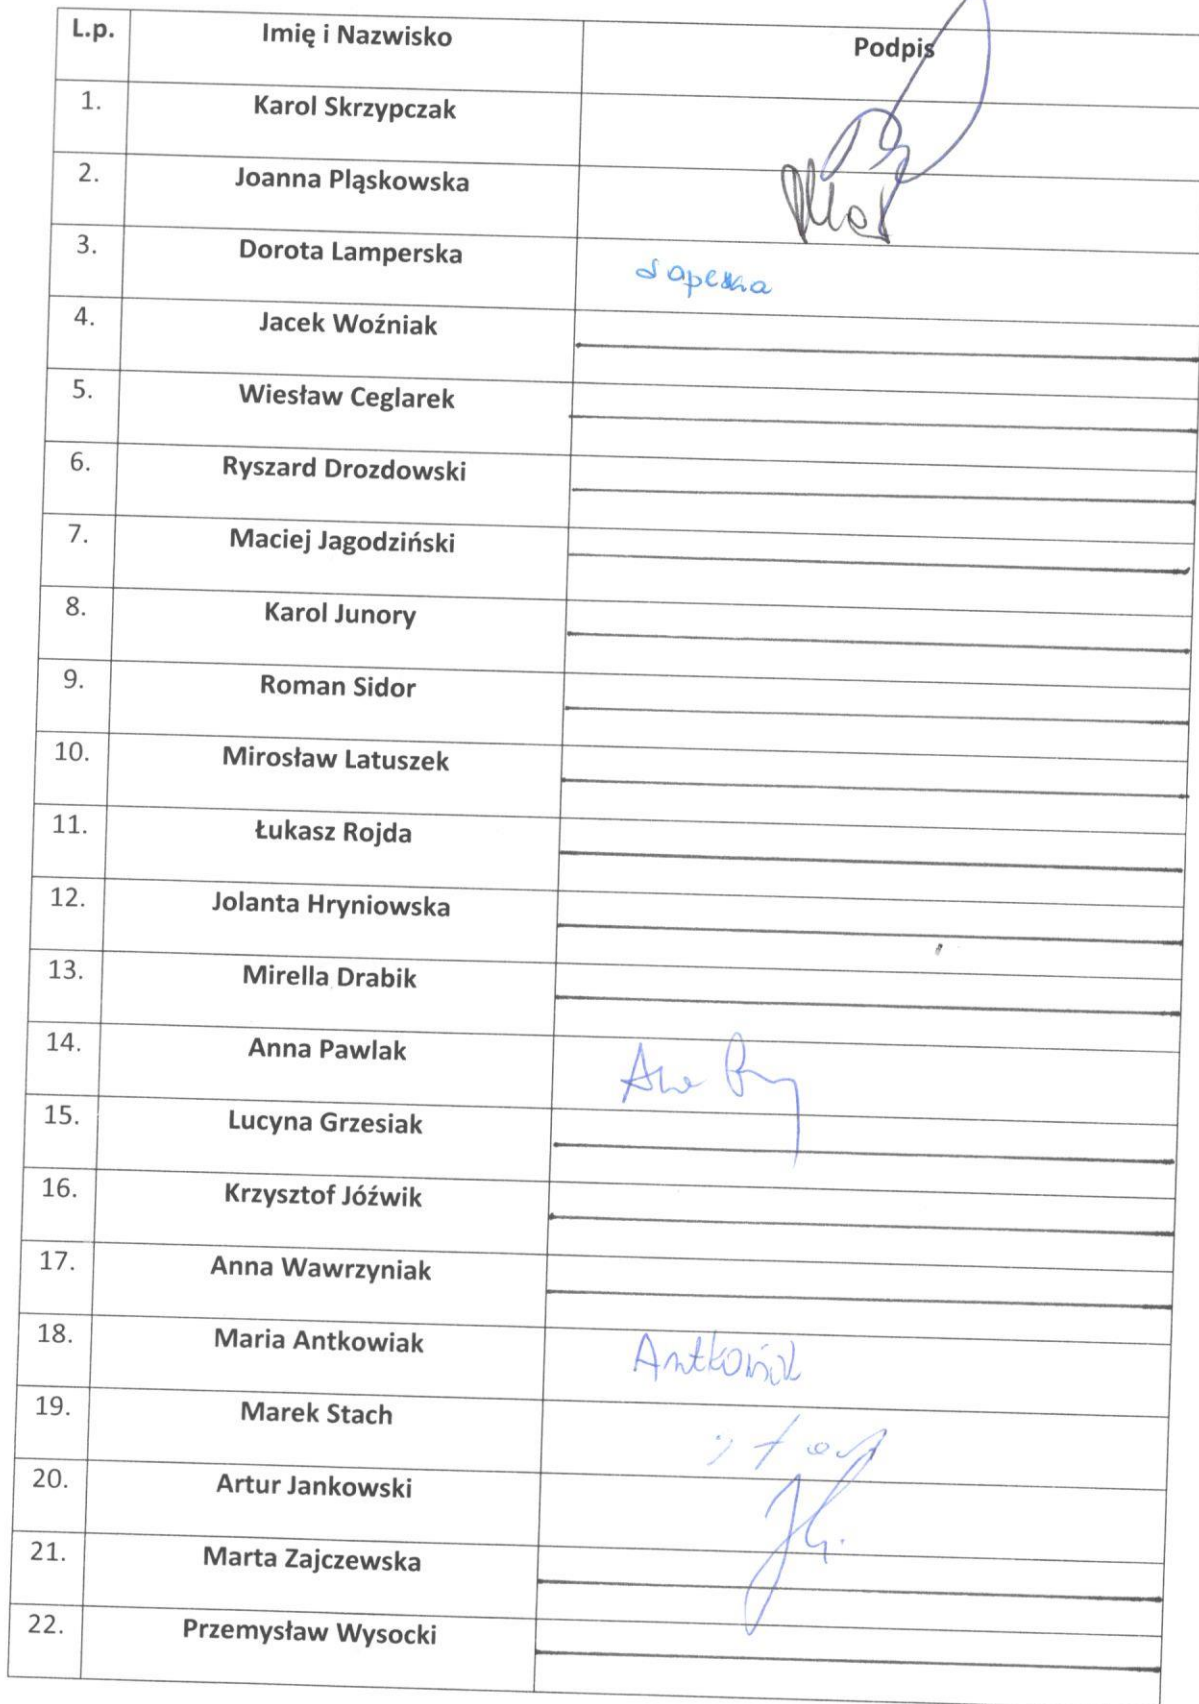 L.p. Imię i Nazwisko Podpis
1. Karol Skrzypczak
2. Joanna Pląskowska
3. Dorota Lamperska
4. Jacek Woźniak
5. Wiesław Ceglarek
6. Ryszard Drozdowski
7. Maciej Jagodziński
8. Karol Junory
9. Roman Sidor
10. Mirosław Latuszek
11. Łukasz Rojda
12. Jolanta Hryniowska
13. Mirella Drabik
14. Anna Pawlak
15. Lucyna Grzesiak
16. Krzysztof Jóźwik
17. Anna Wawrzyniak
18. Maria Antkowiak
19. Marek Stach
20. Artur Jankowski
21. Marta Zajczewska
22. Przemysław Wysocki